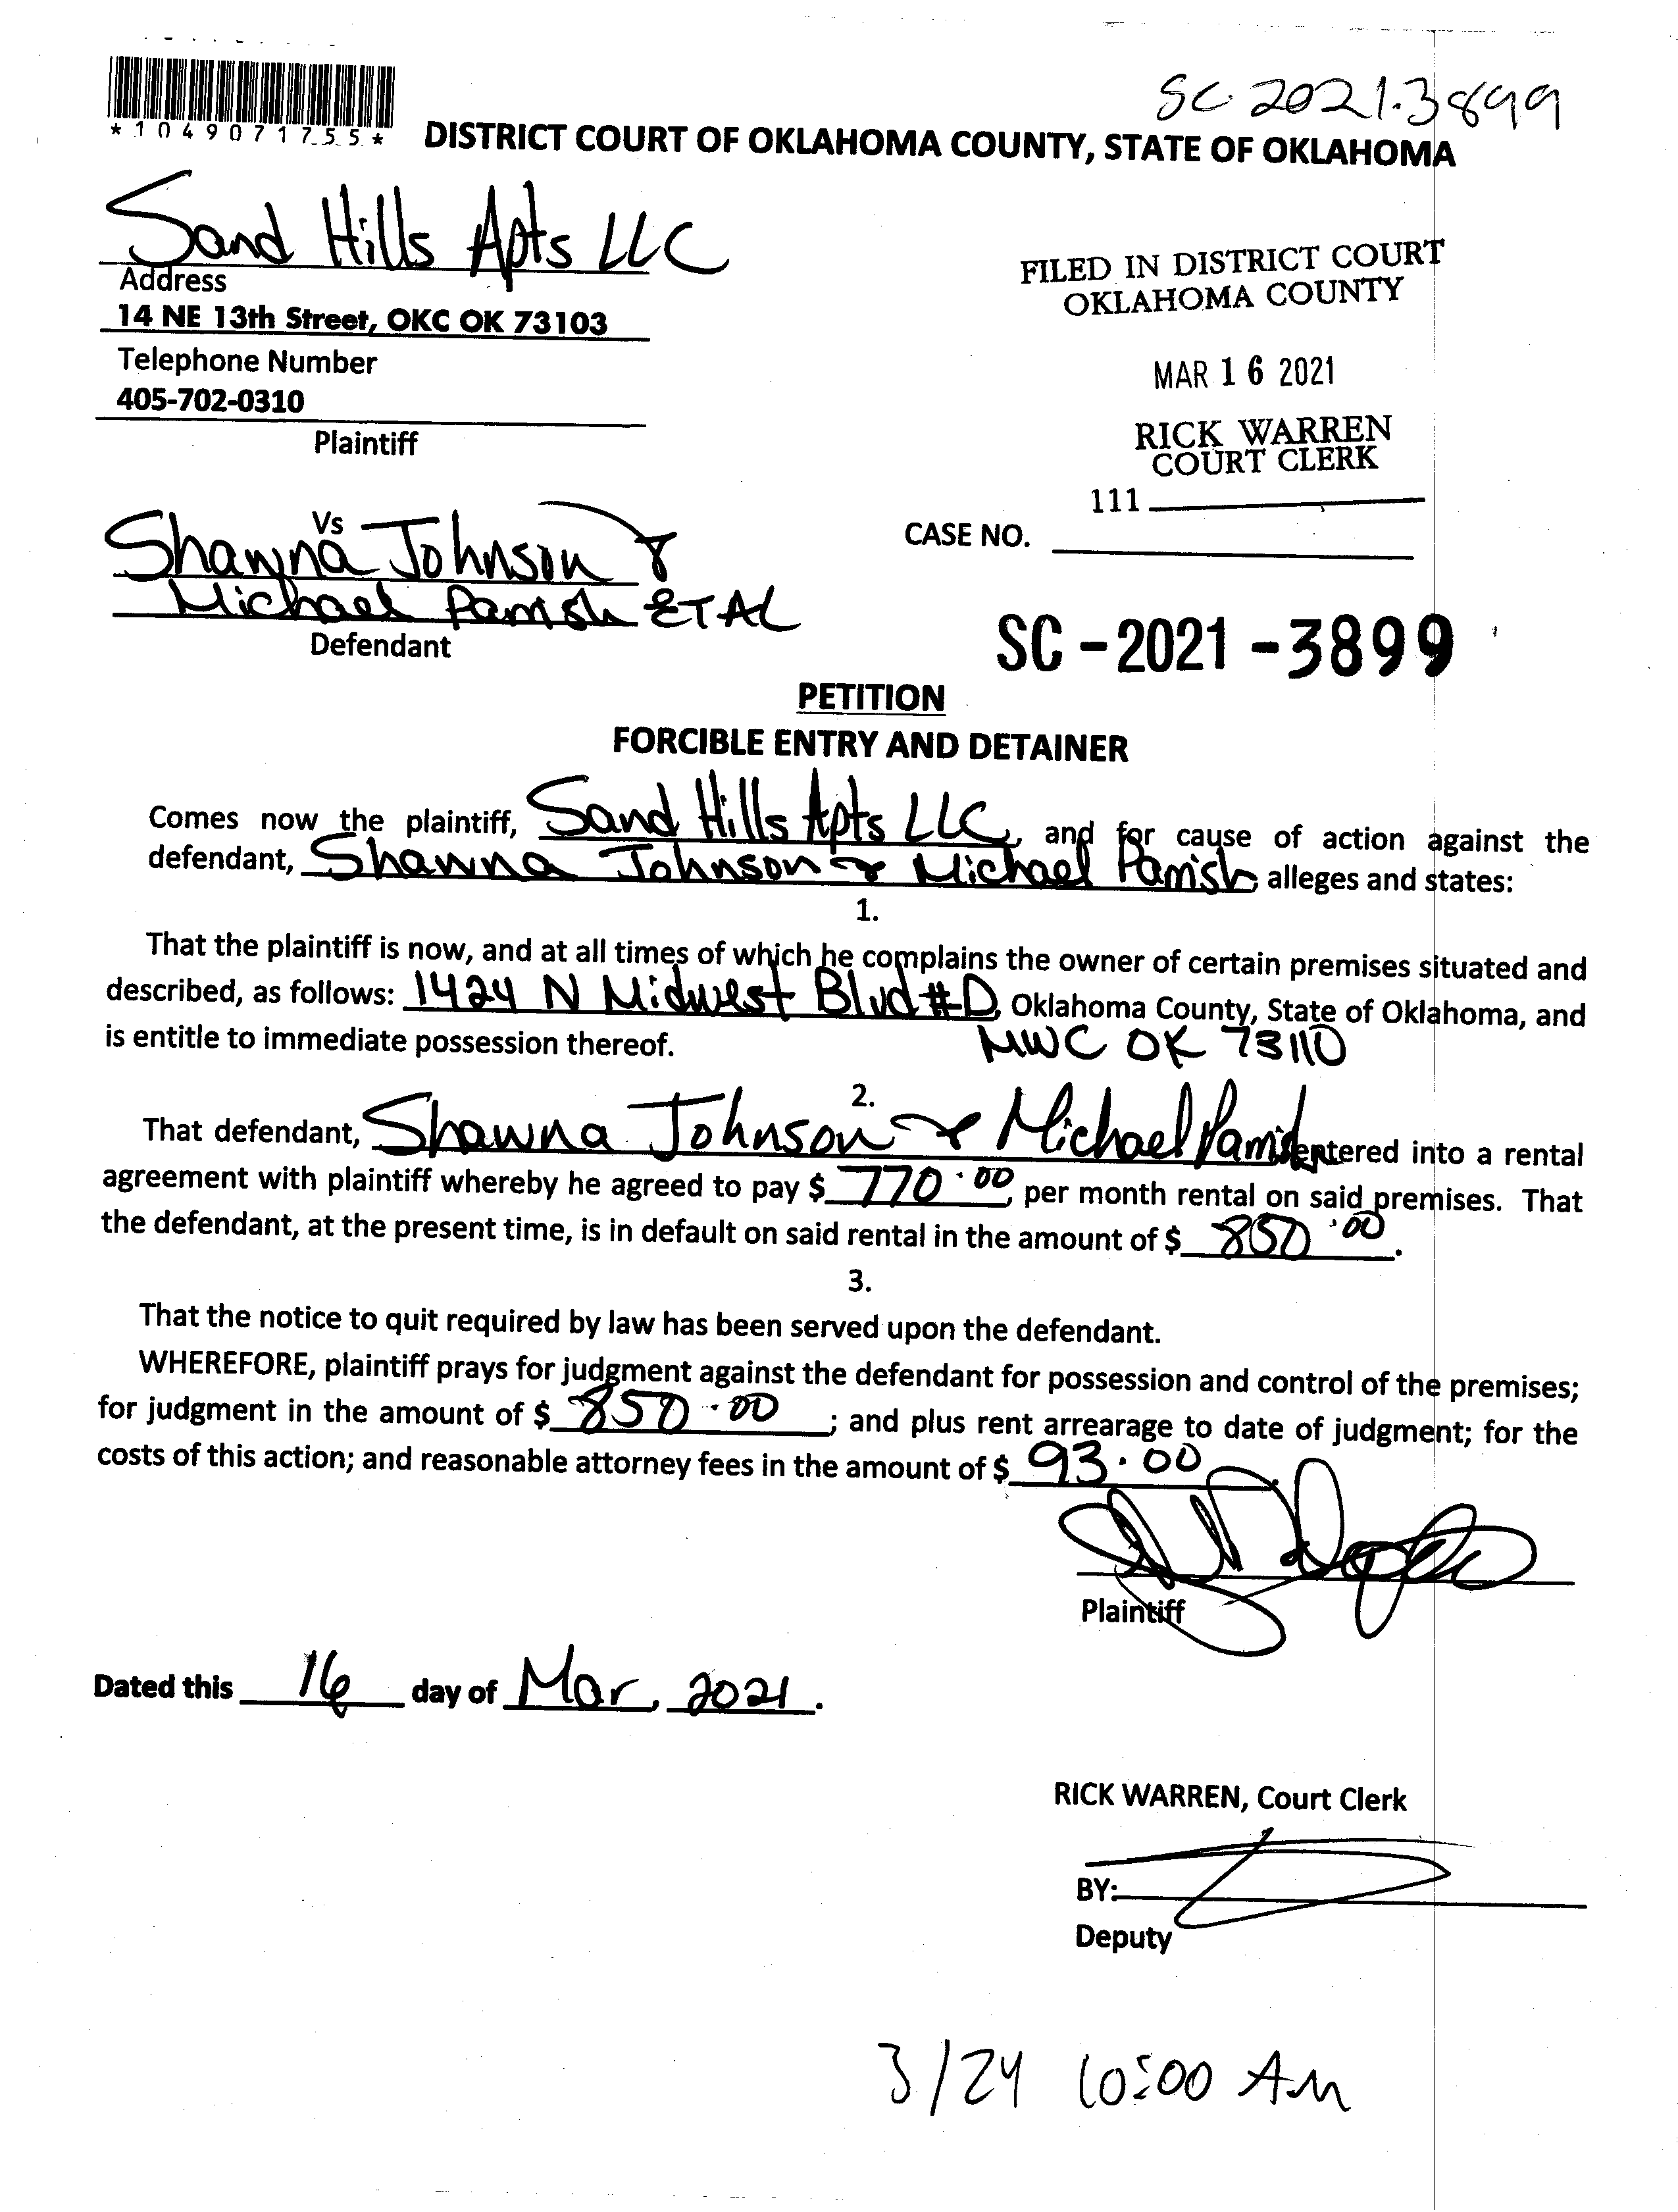 SC-2021-3899
*1049071755*
DISTRICT COURT OF OKLAHOMA COUNTY, STATE OF OKLAHOMA
Sand Hills Apts LLC
Address
14 NE 13th Street, OKC OK 73103
Telephone Number
405-702-0310
Plaintiff
FILED IN DISTRICT COURT
OKLAHOMA COUNTY
MAR 16 2021
RICK WARREN
COURT CLERK
111
Vs
Shawna Johnson &
Michael Parrish ET AL
Defendant
CASE NO.
SC-2021-3899
PETITION
FORCIBLE ENTRY AND DETAINER
Comes now the plaintiff, Sand Hills Apts LLC, and for cause of action against the
defendant, Shawna Johnson & Michael Parrish alleges and states:
1.
That the plaintiff is now, and at all times of which he complains the owner of certain premises situated and
described, as follows: 1424 N Midwest Blvd #D, Oklahoma County, State of Oklahoma, and
is entitle to immediate possession thereof. MWC OK 73110
2.
That defendant, Shawna Johnson & Michael Parrish entered into a rental
agreement with plaintiff whereby he agreed to pay $ 770.00, per month rental on said premises. That
the defendant, at the present time, is in default on said rental in the amount of $ 850.00.
3.
That the notice to quit required by law has been served upon the defendant.
WHEREFORE, plaintiff prays for judgment against the defendant for possession and control of the premises;
for judgment in the amount of $ 850.00; and plus rent arrearage to date of judgment; for the
costs of this action; and reasonable attorney fees in the amount of $ 93.00.
Plaintiff
Dated this 16 day of Mar, 2021.
RICK WARREN, Court Clerk
BY:
Deputy
3/24 10:00 AM